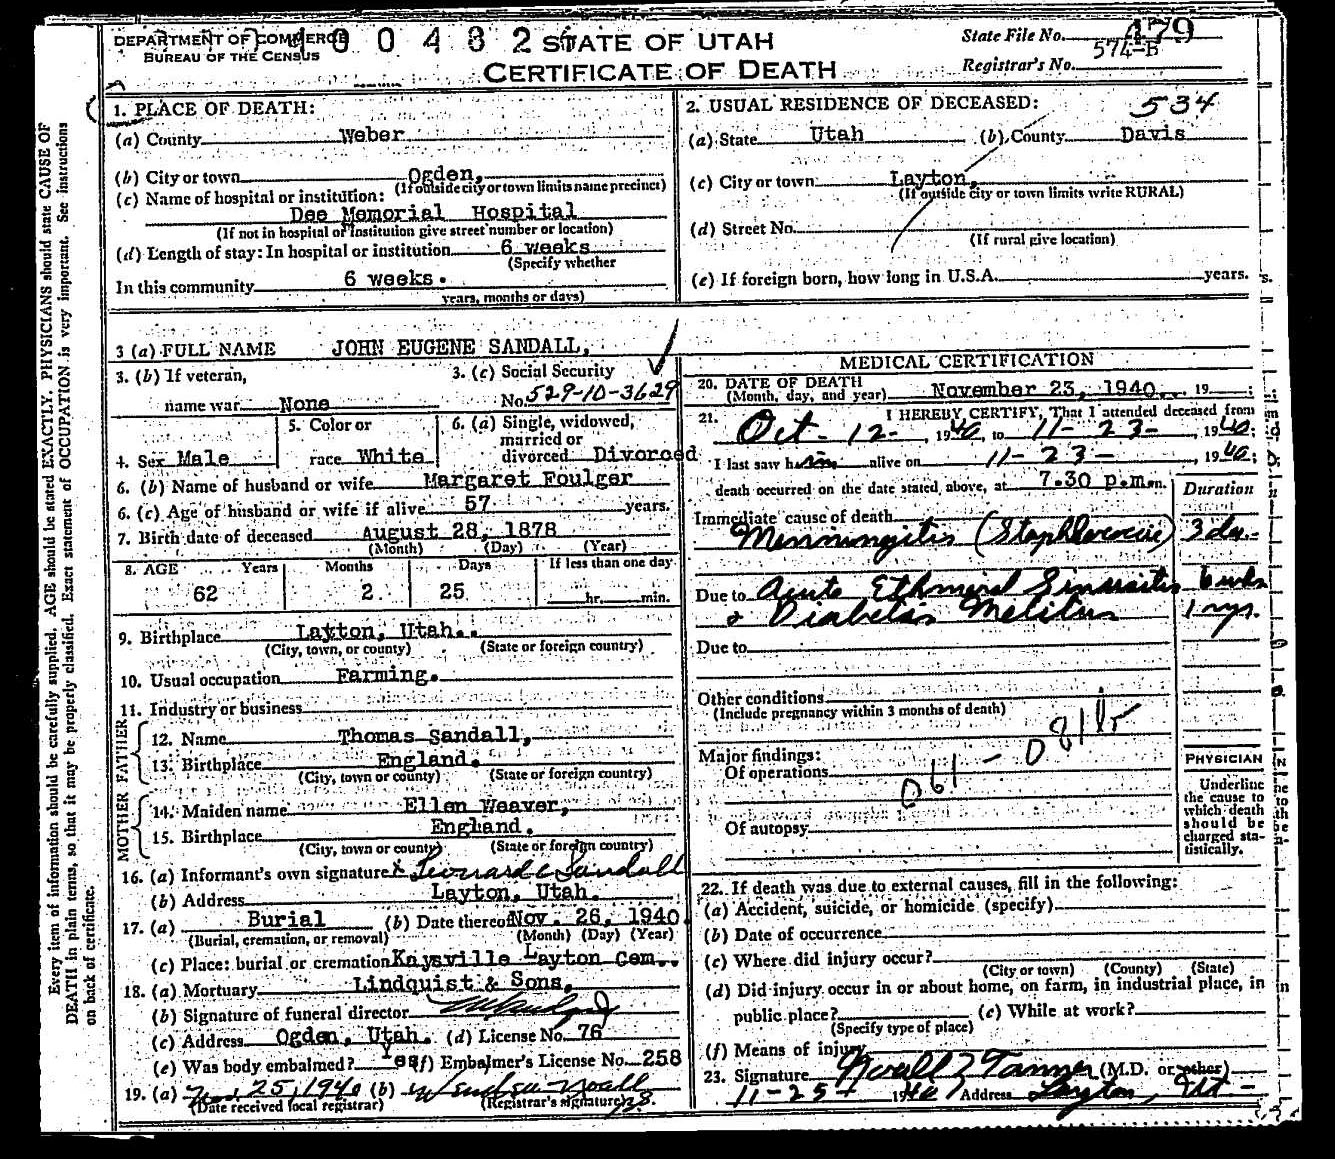 DEPARTMENT OF COMMERCE
BUREAU OF THE CENSUS
STATE OF UTAH
CERTIFICATE OF DEATH
State File No. 479
574-B
Registrar's No.
1. PLACE OF DEATH:
(a) County Weber
(b) City or town Ogden,
(If outside city or town limits name precinct)
(c) Name of hospital or institution:
Dee Memorial Hospital
(If not in hospital or institution give street number or location)
(d) Length of stay: In hospital or institution 6 weeks
(Specify whether
In this community 6 weeks.
years, months or days)
2. USUAL RESIDENCE OF DECEASED: 534
(a) State Utah (b) County Davis
(c) City or town Layton,
(If outside city or town limits write RURAL)
(d) Street No.
(If rural give location)
(e) If foreign born, how long in U.S.A. years.
3 (a) FULL NAME JOHN EUGENE SANDALL,
3. (b) If veteran,
name war None
3. (c) Social Security
No. 529-10-3629
4. Sex Male
5. Color or
race White
6. (a) Single, widowed,
married or
divorced Divorced
6. (b) Name of husband or wife Margaret Foulger
6. (c) Age of husband or wife if alive 57 years.
7. Birth date of deceased August 28, 1878
(Month) (Day) (Year)
8. AGE Years Months Days If less than one day
62 2 25 hr. min.
9. Birthplace Layton, Utah.
(City, town, or county) (State or foreign country)
10. Usual occupation Farming.
11. Industry or business
FATHER
12. Name Thomas Sandall,
13. Birthplace England.
(City, town or county) (State or foreign country)
MOTHER
14. Maiden name Ellen Weaver,
15. Birthplace England.
(City, town or county) (State or foreign country)
16. (a) Informant's own signature x Leonard C Sandall
(b) Address Layton, Utah.
17. (a) Burial (b) Date thereof Nov. 26, 1940.
(Burial, cremation, or removal) (Month) (Day) (Year)
(c) Place: burial or cremation Kaysville Layton Cem.
18. (a) Mortuary Lindquist & Sons,
(b) Signature of funeral director
(c) Address Ogden, Utah. (d) License No. 76
(e) Was body embalmed? Yes (f) Embalmer's License No. 258
19. (a) Nov. 25, 1940 (b)
(Date received local registrar) (Registrar's signature)
MEDICAL CERTIFICATION
20. DATE OF DEATH
(Month, day, and year) November 23, 1940. 19 ;
21. I HEREBY CERTIFY, That I attended deceased from
Oct-12-, 1940, to 11-23-, 1940;
I last saw him alive on 11-23-, 1940,
death occurred on the date stated above, at 7.30 p.m. m.
Duration
Immediate cause of death
Menningitis (Staphlococcic) 3 da.-
Due to Acute Ethmoid Sinusitis 6 wks
& Diabetis Melitus 1 yr.
Due to
Other conditions
(Include pregnancy within 3 months of death)
Major findings:
Of operations
Of autopsy
PHYSICIAN
Underline
the cause to
which death
should be
charged sta-
tistically.
22. If death was due to external causes, fill in the following:
(a) Accident, suicide, or homicide (specify)
(b) Date of occurrence
(c) Where did injury occur?
(City or town) (County) (State)
(d) Did injury occur in or about home, on farm, in industrial place, in
public place? (e) While at work?
(Specify type of place)
(f) Means of injury
23. Signature Noall Z Tanner (M.D. or other)
11-25- 1940 Address Layton, Ut-
Every item of information should be carefully supplied. AGE should be stated EXACTLY. PHYSICIANS should state CAUSE OF
DEATH in plain terms, so that it may be properly classified. Exact statement of OCCUPATION is very important. See instructions
on back of certificate.